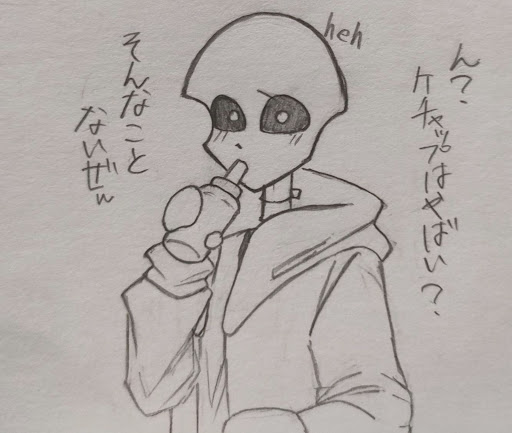 heh
ん?
ケチャップはやばい?
そんなこと
ないぜ